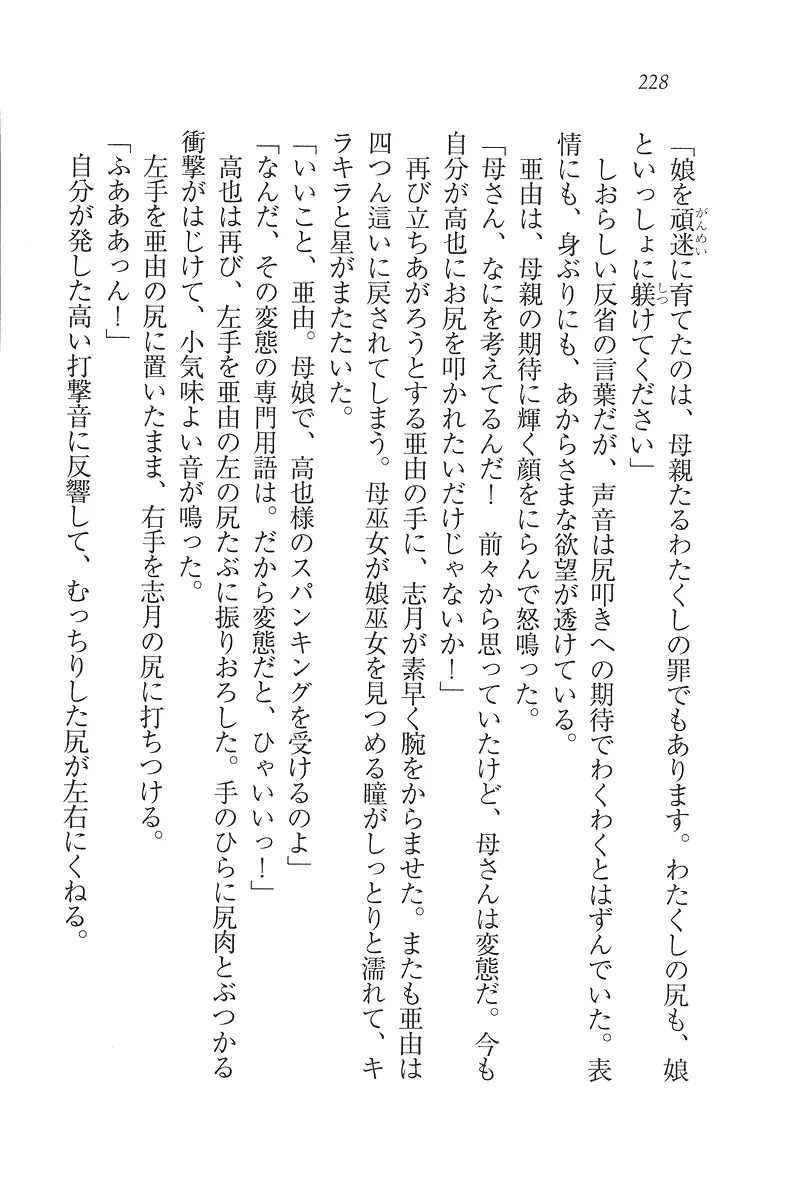 228
「娘を頑迷に育てたのは、母親たるわたくしの罪でもあります。わたくしの尻も、娘
といっしょに躾けてください」
しおらしい反省の言葉だが、声音は尻叩きへの期待でわくわくとはずんでいた。表
情にも、身ぶりにも、あからさまな欲望が透けている。
亜由は、母親の期待に輝く顔をにらんで怒鳴った。
「母さん、なにを考えてるんだ！　前々から思っていたけど、母さんは変態だ。今も
自分が高也にお尻を叩かれたいだけじゃないか！」
再び立ちあがろうとする亜由の手に、志月が素早く腕をからませた。またも亜由は
四つん這いに戻されてしまう。母巫女が娘巫女を見つめる瞳がしっとりと濡れて、キ
ラキラと星がまたたいた。
「いいこと、亜由。母娘で、高也様のスパンキングを受けるのよ」
「なんだ、その変態の専門用語は。だから変態だと、ひゃいいっ！」
高也は再び、左手を亜由の左の尻たぶに振りおろした。手のひらに尻肉とぶつかる
衝撃がはじけて、小気味よい音が鳴った。
左手を亜由の尻に置いたまま、右手を志月の尻に打ちつける。
「ふあああっん！」
自分が発した高い打撃音に反響して、むっちりした尻が左右にくねる。